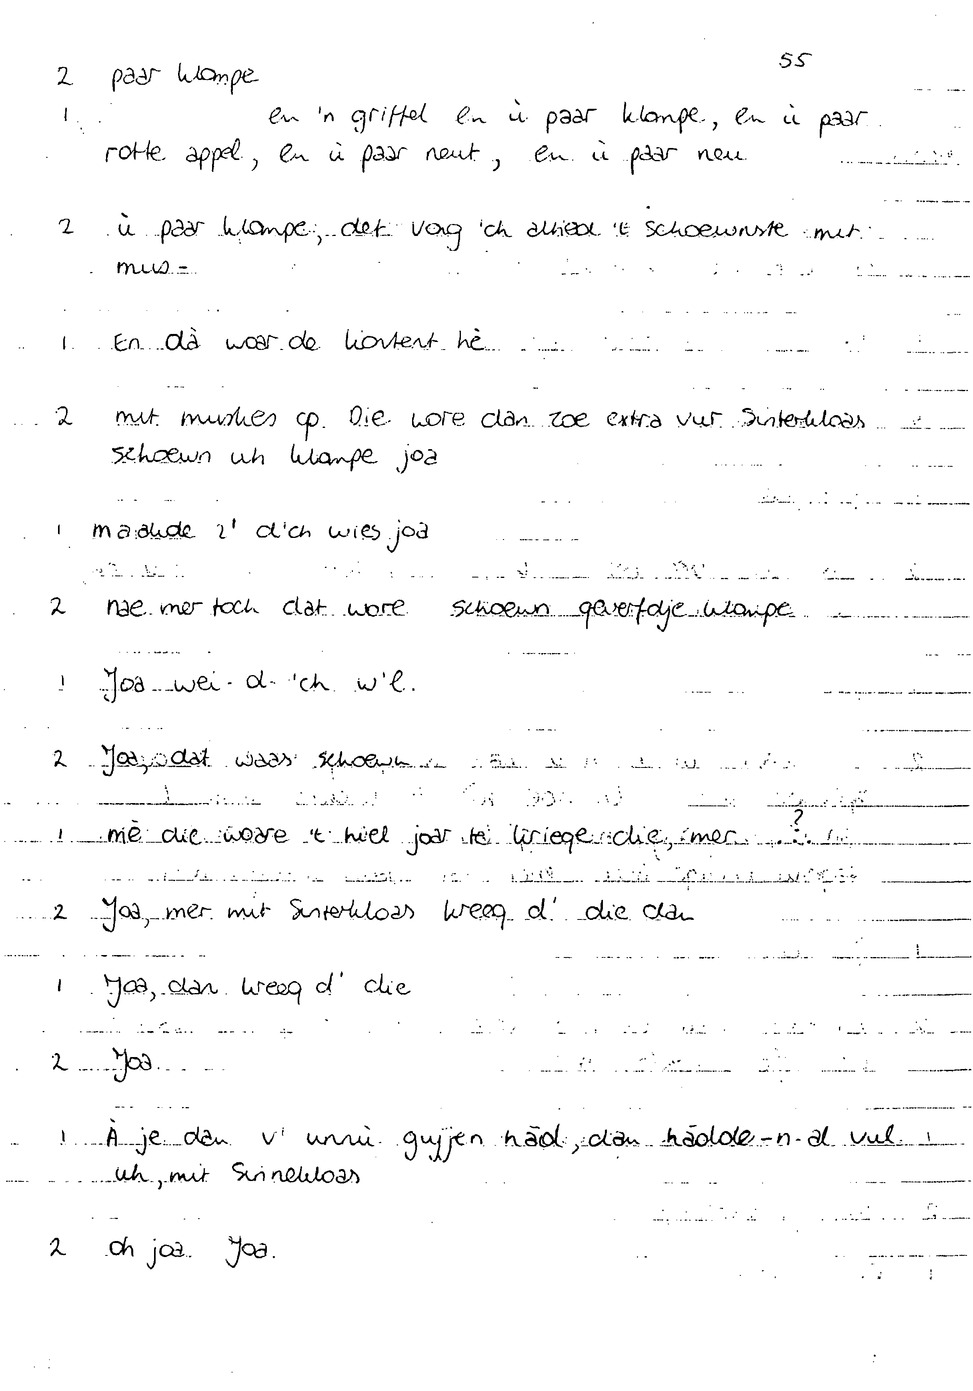 55
2 paar klompe
1. en 'n griffel en ù paar klompe, en ù paar
rotte appel, en ù paar neut, en ù paar neu
2 ù paar klompe, det vong 'ch altied 't schoewnste mit
mus-
1. En dà woar de kontent hè
2 mit muskes op. Die wore dan zoe extra vur Sinterkloas
schoewn uh klompe joa
1 maakde z' d'ch wies joa
2 nae mer toch dat wore schoewn geverfdje klompe
1 Joa wei-d-'ch w'l.
2 Joa, dat waas schoewn
1 mè die woare 't hiel joar te kriege die, mer ...?
2 Joa, mer mit Sinterkloas kreeg d' die dan
1 Joa, dan kreeg d' die
2 Joa.
1 À je dan v' unnù guyjen hãd, dan hãdde-n-al vul
uh, mit Sinnekloas
2 oh joa. Joa.